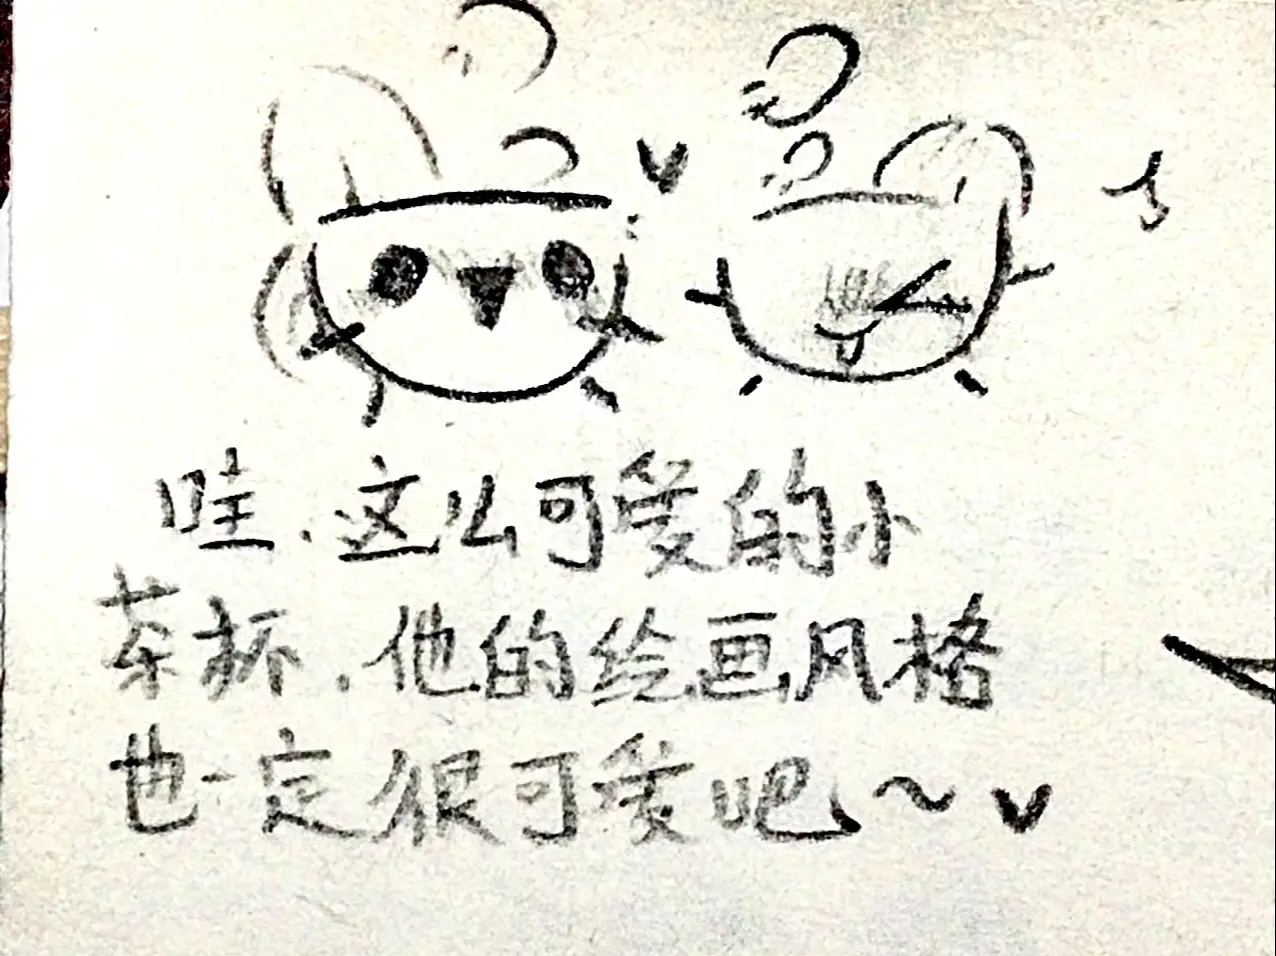 哇、这么可爱的小
茶杯、他的绘画风格
也一定很可爱吧～